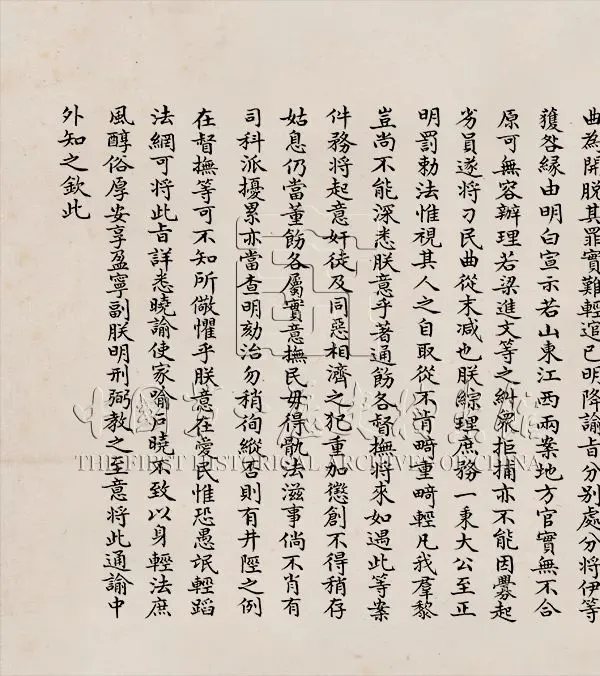 曲為開脫其罪實難輕逭已明降諭旨分別處分將伊等
獲咎緣由明白宣示若山東江西兩案地方官實無不合
原可無容辦理若梁進文等之糾眾拒捕亦不能因釁起
劣員遂將刁民曲從末減也朕綜理庶務一秉大公至正
明罰勅法惟視其人之自取從不肯畸重畸輕凡我羣黎
豈尚不能深悉朕意乎著通飭各督撫將來如遇此等案
件務將起意奸徒及同惡相濟之犯重加懲創不得稍存
姑息仍當董飭各屬實意撫民毋得骩法滋事倘不肖有
司科派擾累亦當查明劾治勿稍徇縱否則有井陘之例
在督撫等可不知所儆懼乎朕意在愛民惟恐愚氓輕蹈
法網可將此旨詳悉曉諭使家喻戶曉不致以身輕法庶
風醇俗厚安享盈寧副朕明刑弼教之至意將此通諭中
外知之欽此
中國第一歷史檔案館
THE FIRST HISTORICAL ARCHIVES OF CHINA